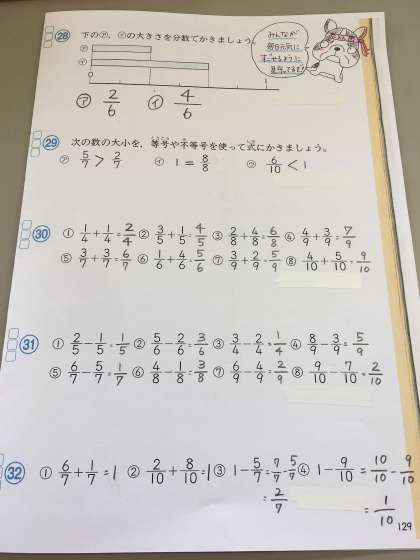 28 下の㋐、㋑の大きさを分数でかきましょう。
みんなが
毎日元気に
すごせるように
見守ってるぜ
㋐
㋑
0 1
㋐ 2/6 ㋑ 4/6
29 次の数の大小を、等号や不等号を使って式にかきましょう。
㋐ 5/7 > 2/7 ㋑ 1 = 8/8 ㋒ 6/10 < 1
30 ① 1/4 + 1/4 = 2/4 ② 3/5 + 1/5 = 4/5 ③ 2/8 + 4/8 = 6/8 ④ 4/9 + 3/9 = 7/9
⑤ 3/7 + 3/7 = 6/7 ⑥ 1/6 + 4/6 = 5/6 ⑦ 3/9 + 2/9 = 5/9 ⑧ 4/10 + 5/10 = 9/10
31 ① 2/5 − 1/5 = 1/5 ② 5/6 − 2/6 = 3/6 ③ 3/4 − 2/4 = 1/4 ④ 8/9 − 3/9 = 5/9
⑤ 6/7 − 5/7 = 1/7 ⑥ 4/8 − 1/8 = 3/8 ⑦ 6/9 − 4/9 = 2/9 ⑧ 9/10 − 7/10 = 2/10
32 ① 6/7 + 1/7 = 1 ② 2/10 + 8/10 = 1 ③ 1 − 5/7 = 7/7 − 5/7 ④ 1 − 9/10 = 10/10 − 9/10
= 2/7 = 1/10
129